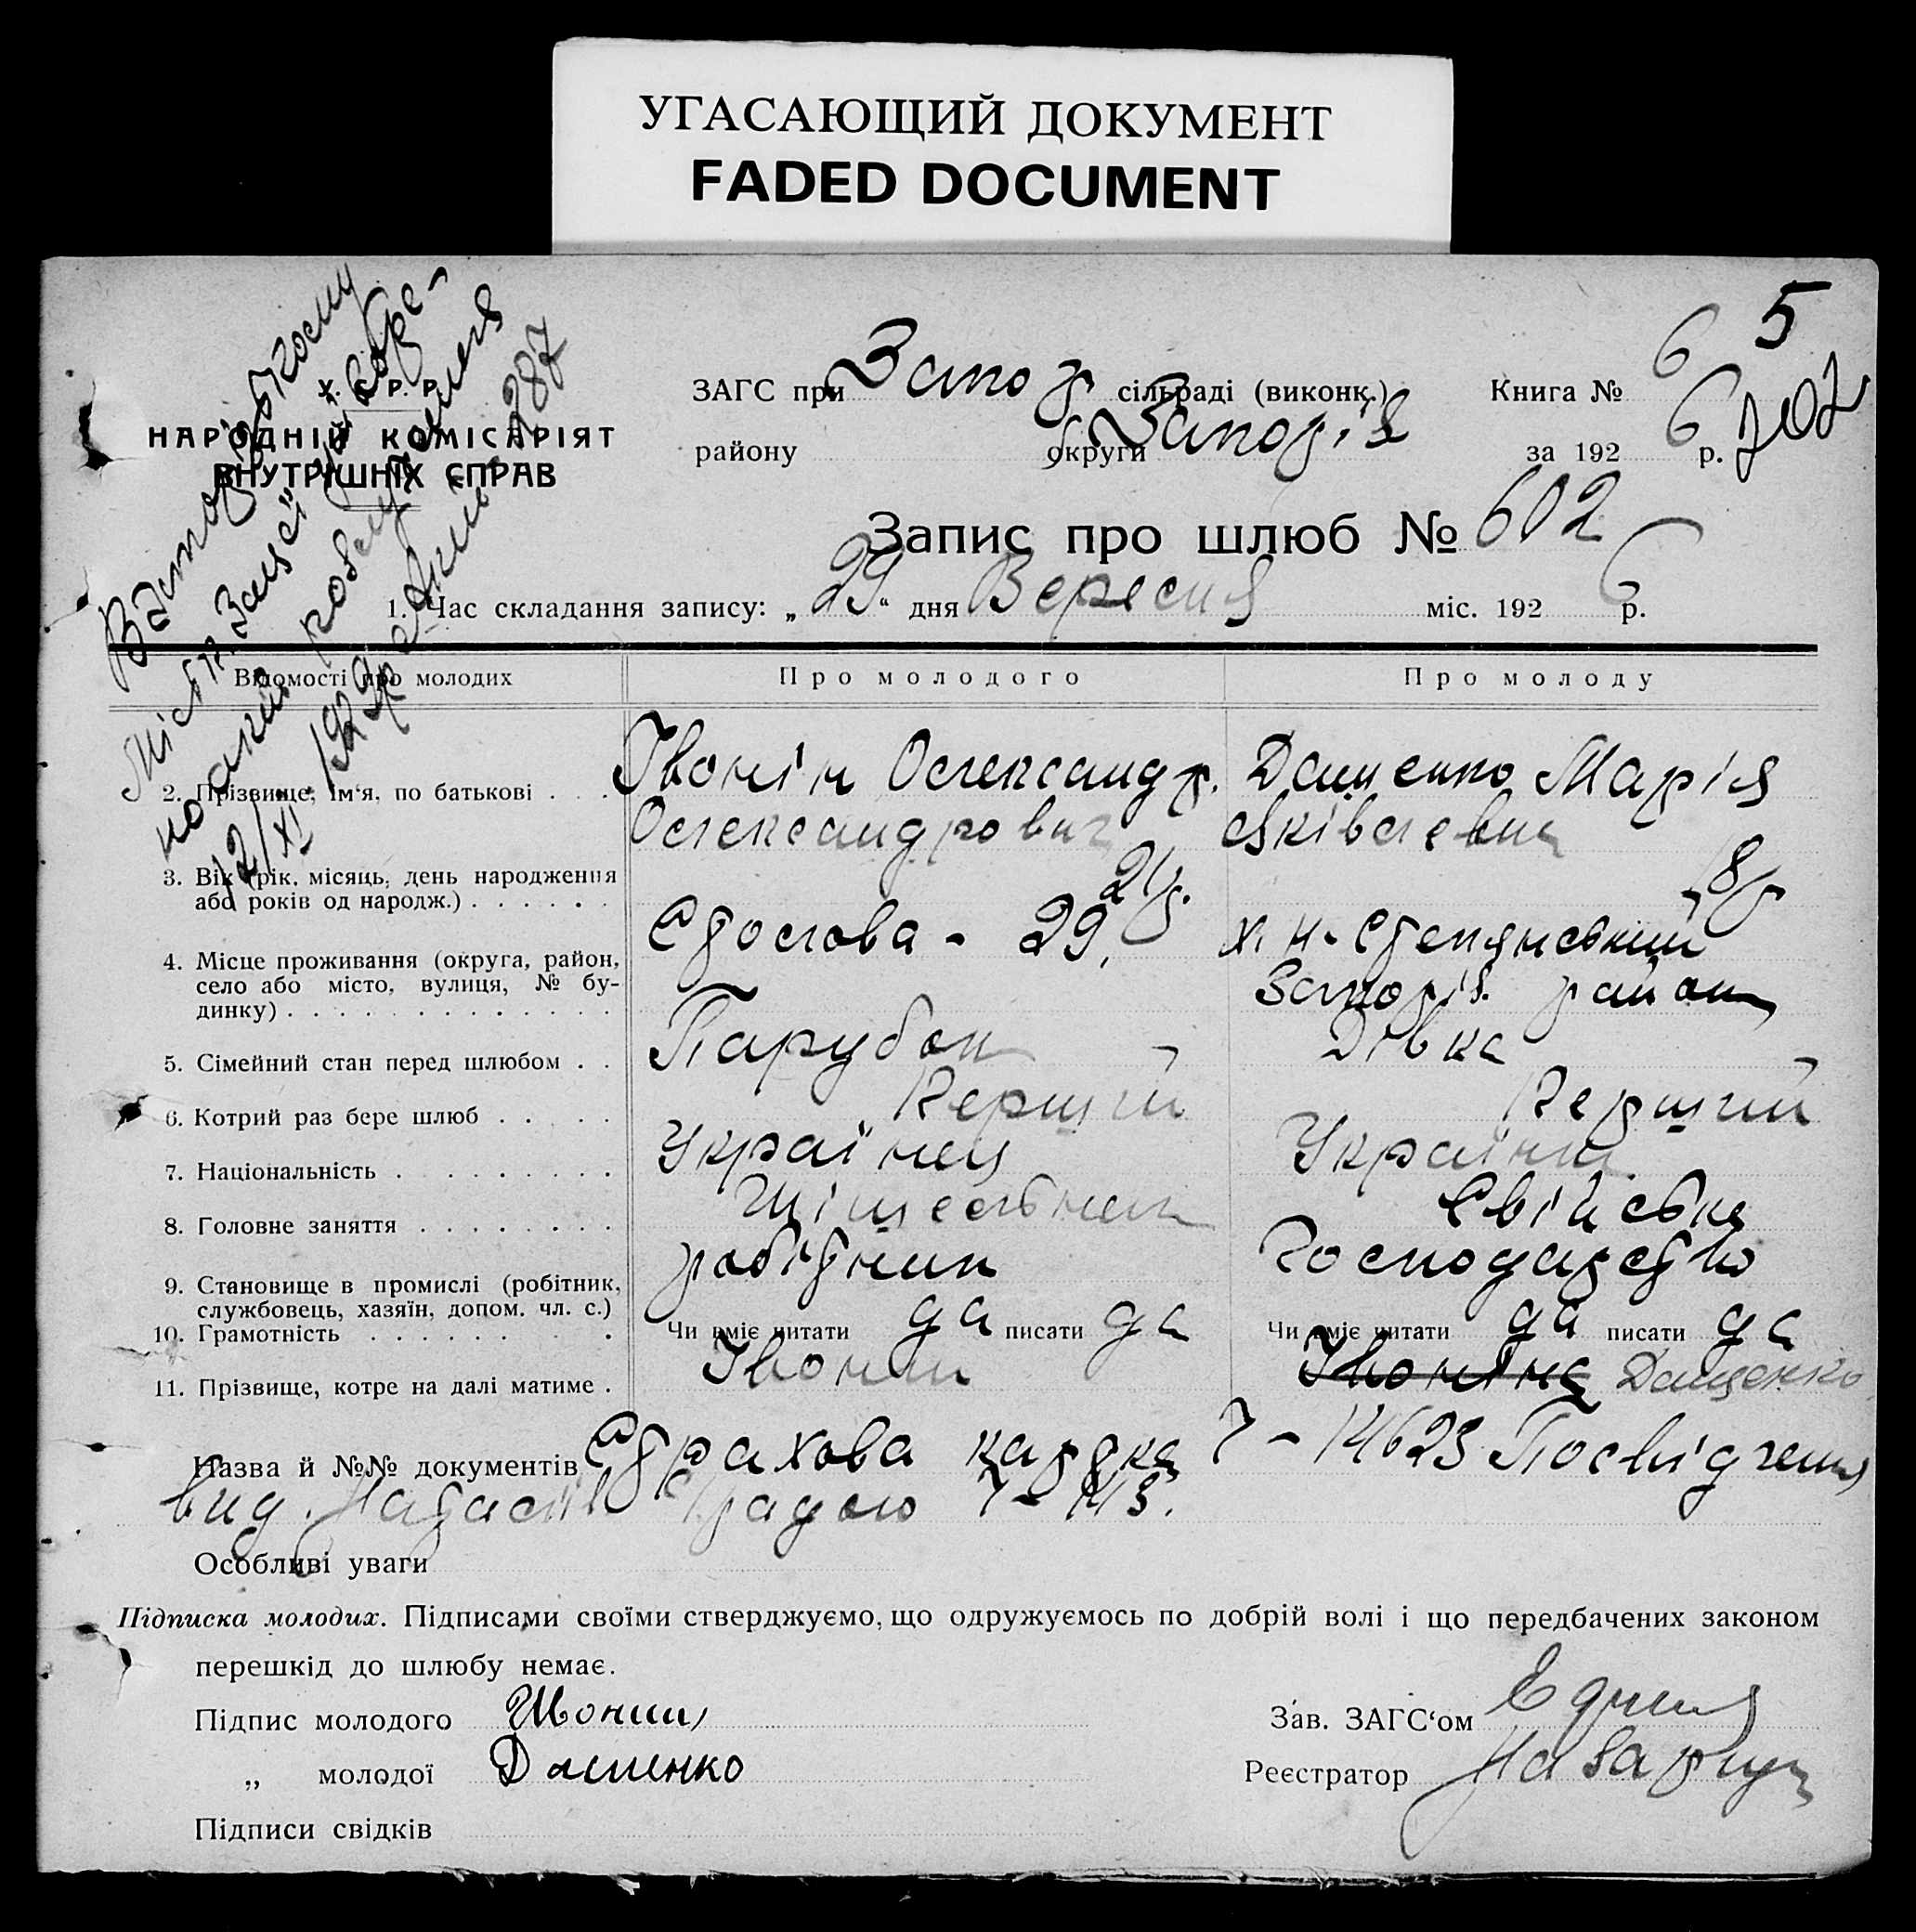 УГАСАЮЩИЙ ДОКУМЕНТ
FADED DOCUMENT
5
У. С. Р. Р.
НАРОДНІЙ КОМІСАРІЯТ
ВНУТРІШНІХ СПРАВ
12/XI 1929р. 287
ЗАГС при Запор сільраді (виконк.) Книга № 6
району округи Запоріз за 192 6 р. 702
Запис про шлюб № 602
1. Час складання запису: „29“ дня Вересня міс. 192 6 р.
Відомості про молодих Про молодого Про молоду
2. Прізвище, ім‘я, по батькові . . . Івонін Олександр. Дащенко Марія
Олександрович Яківлевна
3. Вік (рік, місяць, день народження 21р. 18р
або років од народж.) . . . . . .
4. Місце проживання (округа, район, Столова - 29, х. Н-Степянський
село або місто, вулиця, № бу- Запоріз. район
динку) . . . . . . . . . . . . .
5. Сімейний стан перед шлюбом . . Парубок Дівка
6. Котрий раз бере шлюб . . . . . Перший Перший
7. Національність . . . . . . . . . Українец Українка
8. Головне заняття . . . . . . . . Свійське
9. Становище в промислі (робітник, робітник Господарство
службовець, хазяїн, допом. чл. с.)
10. Грамотність . . . . . . . . Чи вміє читати да писати да Чи вміє читати да писати да
11. Прізвище, котре на далі матиме . Івонін Івоніна Дащенко
Назва й №№ документів Страхова картка 7 - 14623 Посвідчення
вид. радою
Особливі уваги
Підписка молодих. Підписами своїми стверджуємо, що одружуємось по добрій волі і що передбачених законом
перешкід до шлюбу немає.
Підпис молодого Ивонин Зав. ЗАГС‘ом
„ молодої Дащенко Реєстратор
Підписи свідків